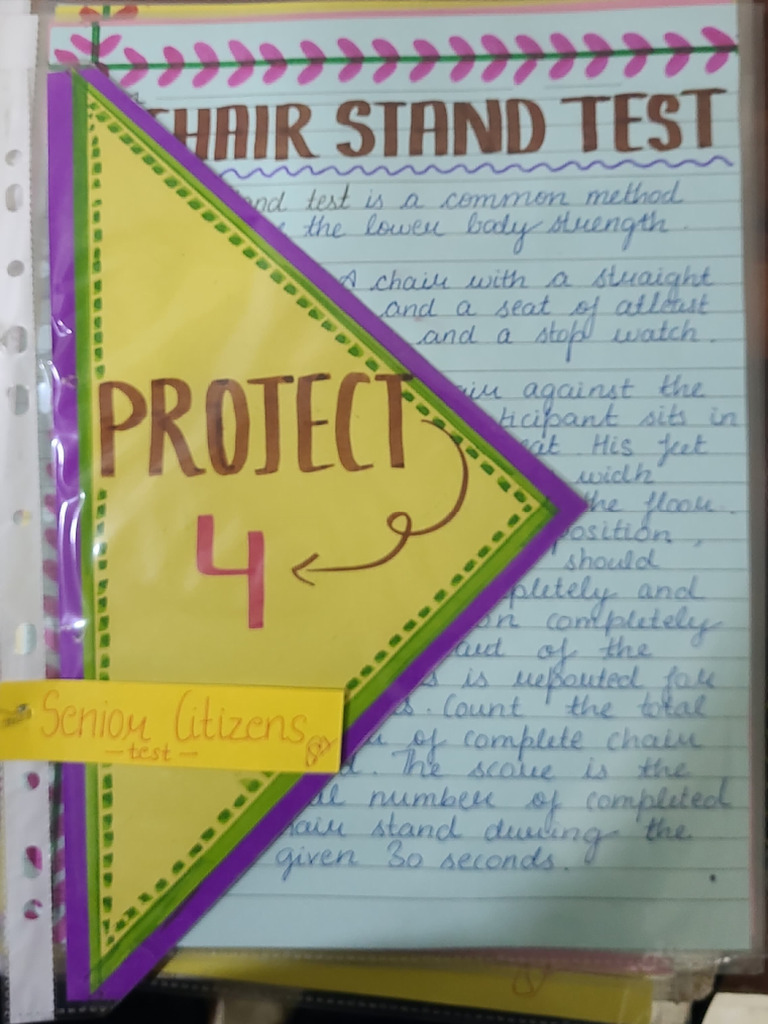 CHAIR STAND TEST
test is a common method
the lower body strength.
A chair with a straight
and a seat of atleast
and a stop watch.
against the
sits in
His feet
width
the floor.
position,
should
and
completely
of the
is repouted for
Count the total
of complete chair
The score is the
number of completed
stand during the
given 30 seconds.
PROJECT
4
Senior Citizens
-test-